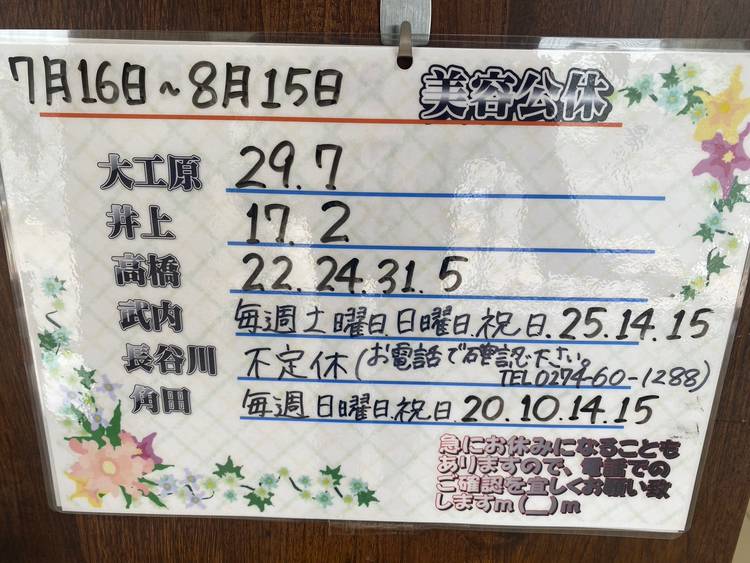 7月16日~8月15日 美容公休
大工原 29.7
井上 17.2
高橋 22.24.31.5
武内 毎週土曜日.日曜日.祝日.25.14.15
長谷川 不定休(お電話で確認下さい。
TEL0274-60-1288)
角田 毎週日曜日.祝日.20.10.14.15
急にお休みになることも
ありますので、電話での
ご確認を宜しくお願い致
しますm(__)m